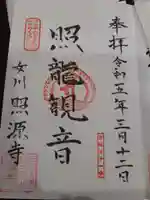 奉拝 令和五年三月十二日
照龍観音
女川 照源寺